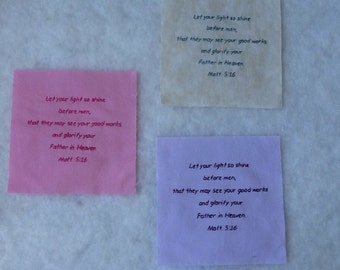 Let your light so shine
before men,
that they may see your good works
and glorify your
Father in Heaven
Matt 5:16
Let your light so shine
before men,
that they may see your good works
and glorify your
Father in Heaven
Matt 5:16
Let your light so shine
before men,
that they may see your good works
and glorify your
Father in Heaven
Matt 5:16